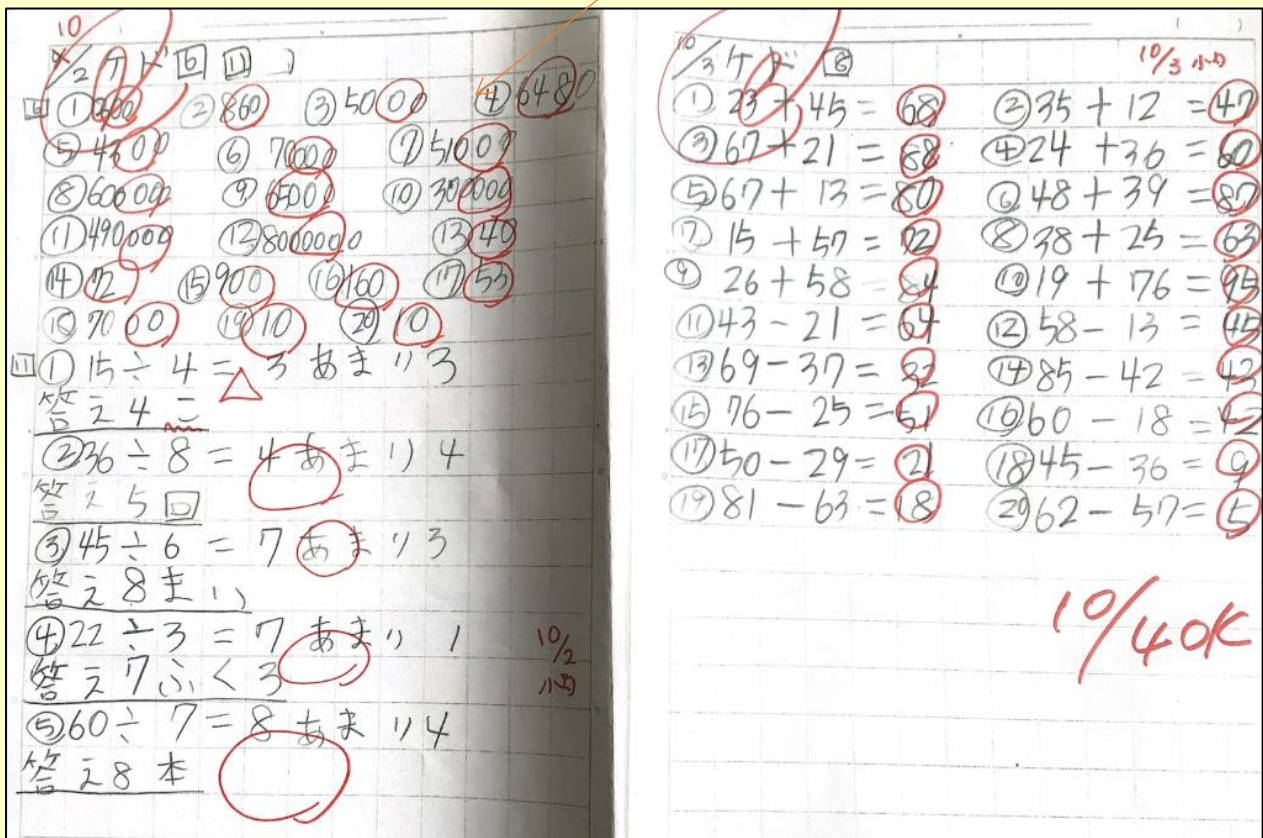 10
/2 ケド 6 11
6 ① 300 ② 860 ③ 5000 ④ 6480
⑤ 4300 ⑥ 7000 ⑦ 5100
⑧ 60000 ⑨ 6500 ⑩ 300000
⑪ 490000 ⑫ 8000000 ⑬ 40
⑭ 72 ⑮ 900 ⑯ 160 ⑰ 53
⑱ 7000 ⑲ 10 ⑳ 10
11 ① 15÷4=3あまり3
答え4こ
②36÷8=4あまり4
答え5回
③45÷6=7あまり3
答え8まい
④22÷3=7あまり1
答え7ふくろ
10/2
⑤60÷7=8あまり4
答え8本
10/3 ケド 8
10/3
① 23+45=68 ②35+12=47
③67+21=88 ④24+36=60
⑤67+13=80 ⑥48+39=87
⑦15+57=72 ⑧38+25=63
⑨26+58=84 ⑩19+76=95
⑪43-21=64 ⑫58-13=45
⑬69-37=32 ⑭85-42=43
⑮76-25=51 ⑯60-18=42
⑰50-29=21 ⑱45-36=9
⑲81-63=18 ⑳62-57=5
10/4OK